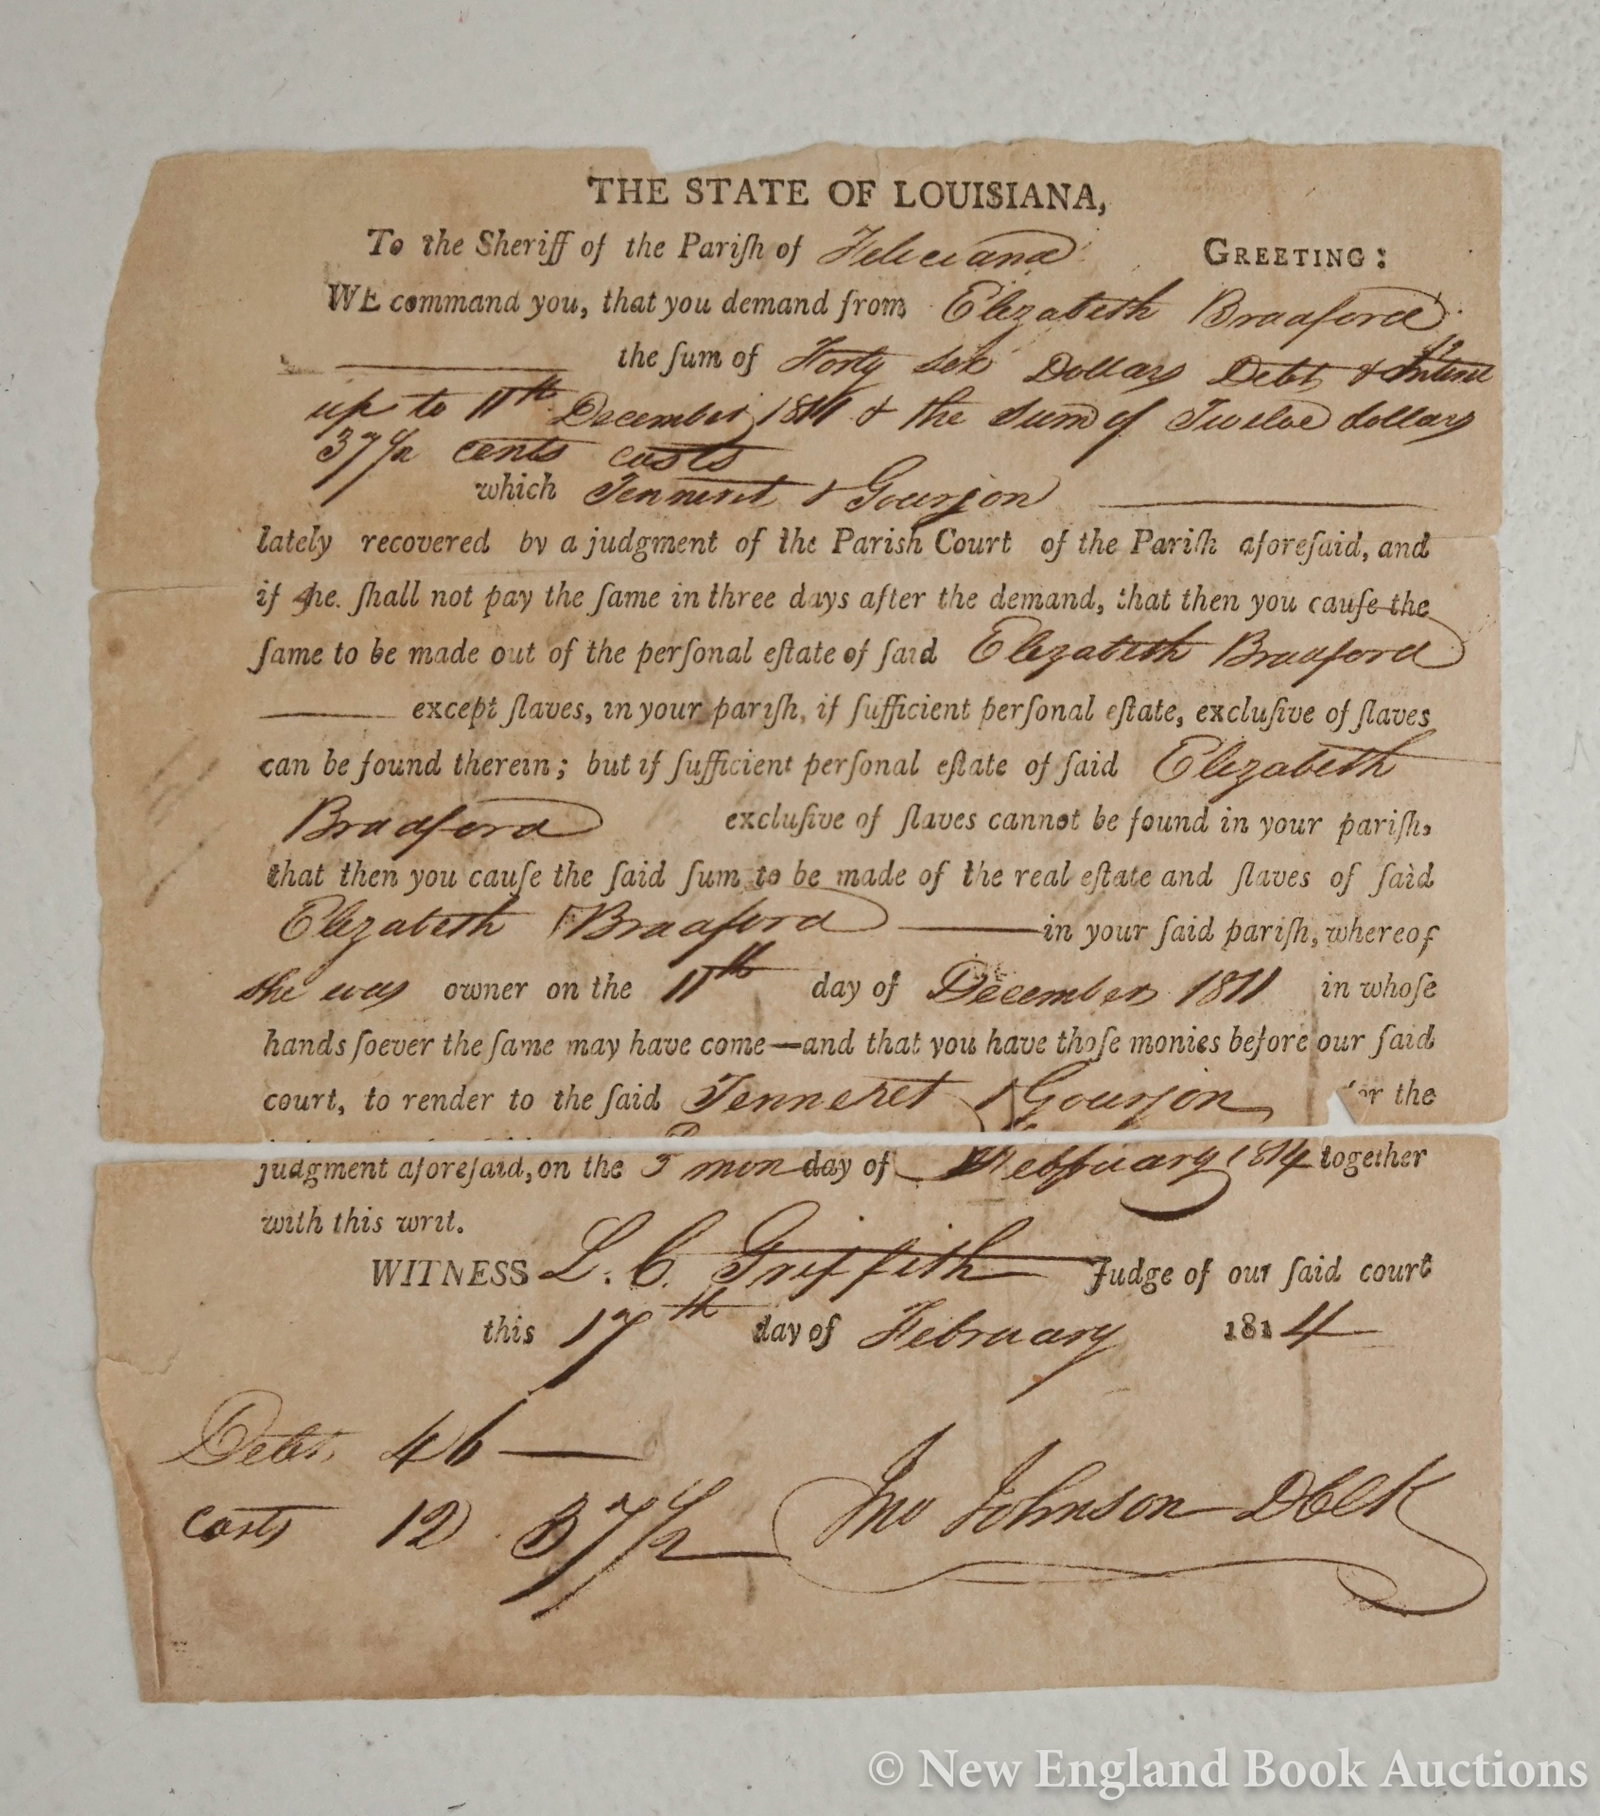 THE STATE OF LOUISIANA,
To the Sheriff of the Pariſh of Feliciana GREETING:
WE command you, that you demand from Elizabeth Bradford
the ſum of Forty six Dollars Debt &
up to 11th December 1811 & the Sum of Twelve dollars
37 1/2 cents costs
which Jenneret & Gourjon
lately recovered by a judgment of the Parish Court of the Pariſh aforeſaid, and
if ſhe. ſhall not pay the ſame in three days after the demand, that then you cauſe the
ſame to be made out of the perſonal eſtate of ſaid Elizabeth Bradford
except ſlaves, in your pariſh, if ſufficient perſonal eſtate, excluſive of ſlaves
can be found therein; but if ſufficient perſonal eſtate of ſaid Elizabeth
Bradford excluſive of ſlaves cannot be found in your pariſh,
that then you cauſe the ſaid ſum to be made of the real eſtate and ſlaves of ſaid
Elizabeth Bradford in your ſaid pariſh, whereof
she was owner on the 11th day of December 1811 in whoſe
hands ſoever the ſame may have come—and that you have thoſe monies before our ſaid
court, to render to the ſaid Jenneret & Gourjon for the
judgment aforeſaid, on the 3 mon day of February 1814 together
with this writ.
WITNESS L. C. Griffith Judge of our ſaid court
this 17th day of February 1814
Debt, 46—
Costs 12 . 37 1/2 Jno Johnson DClk
© New England Book Auctions